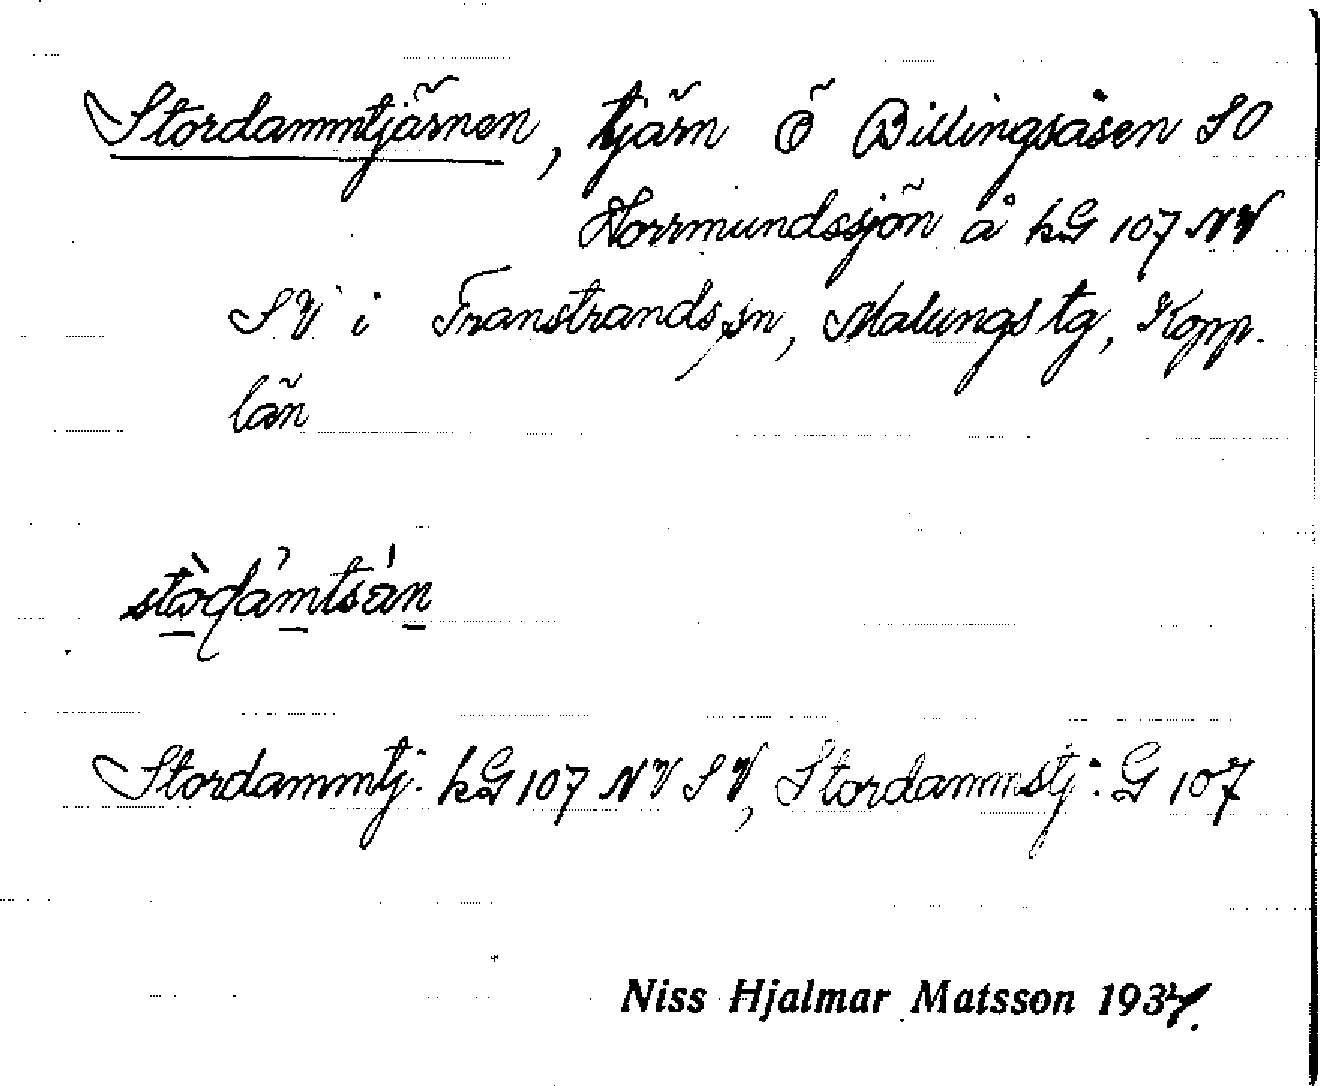 Stordammtjärnen, tjärn Ö Billingsåsen SO
Horrmundssjön å kG 107 NV
SV i Transtrands sn, Malungs tg, Kopp.
län
Stordammtj: kG 107 NV SV, Stordammstj: G 107
Niss Hjalmar Matsson 1937.